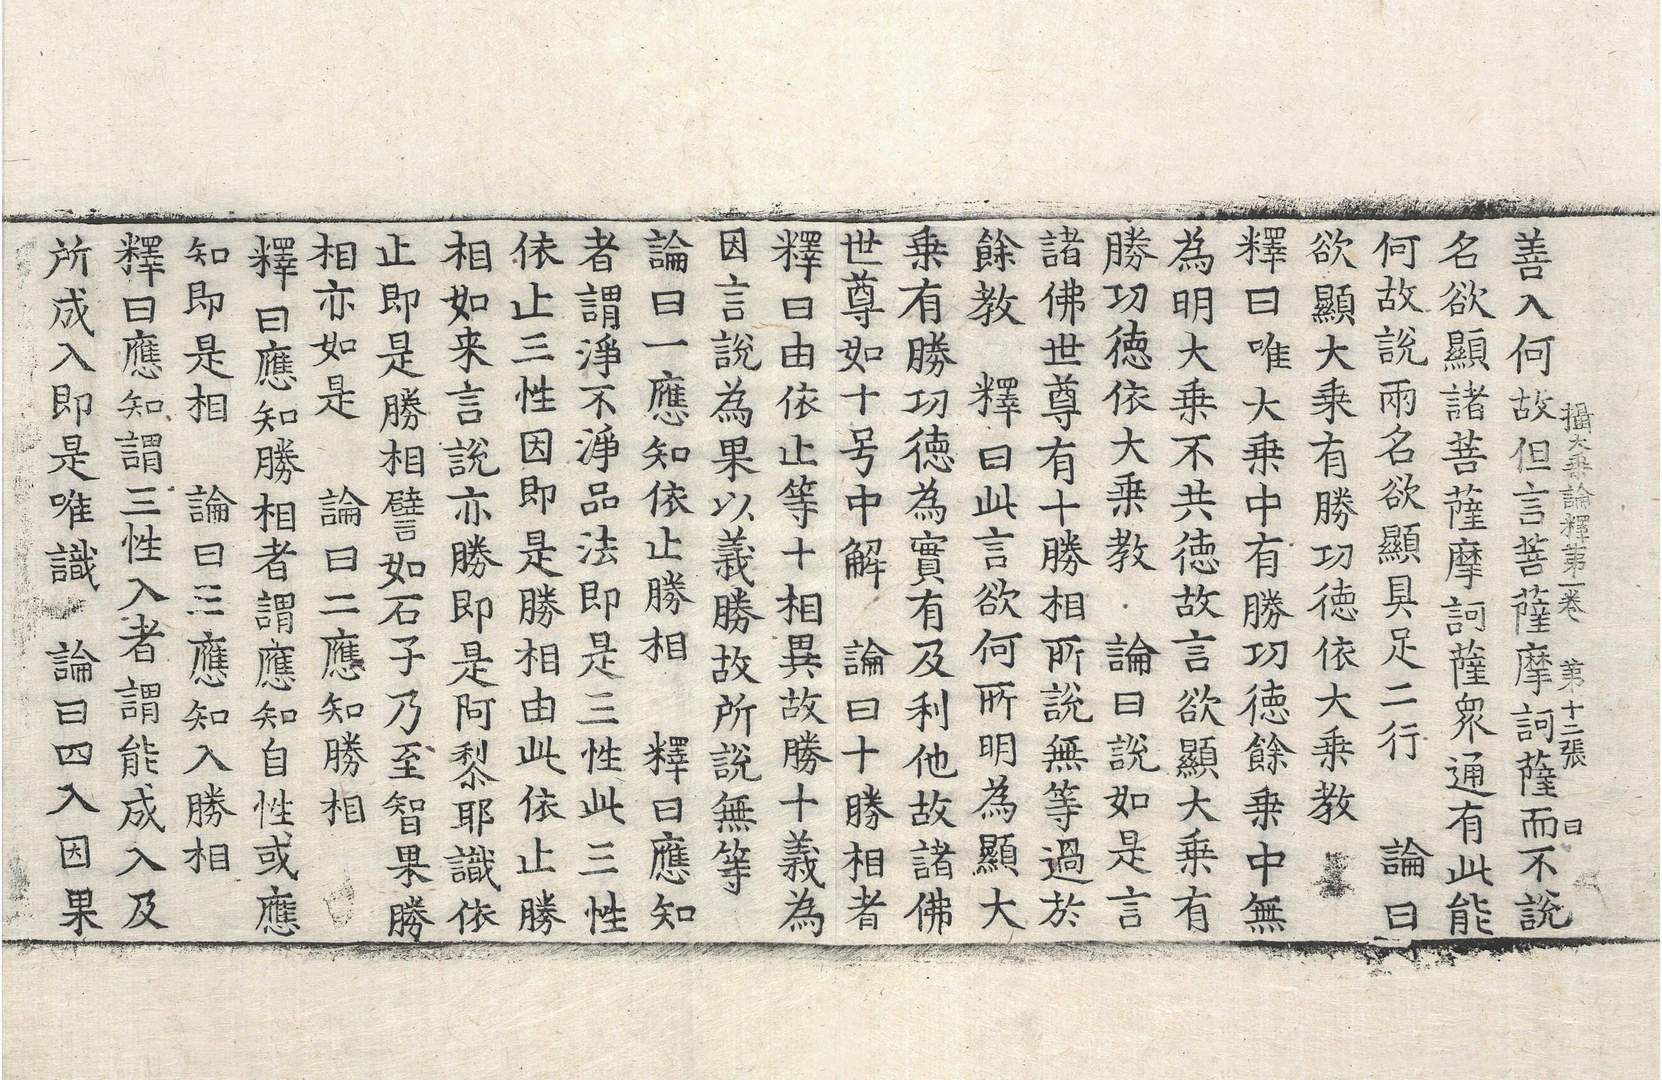 攝大乘論釋第一卷　第十二張　日
善入何故但言菩薩摩訶薩而不說
名欲顯諸菩薩摩訶薩衆通有此能
何故說兩名欲顯具足二行　論曰
欲顯大乘有勝功德依大乘教
釋曰唯大乘中有勝功德餘乘中無
為明大乘不共德故言欲顯大乘有
勝功德依大乘教　論曰說如是言
諸佛世尊有十勝相所說無等過於
餘教　釋曰此言欲何所明為顯大
乘有勝功德為實有及利他故諸佛
世尊如十号中解　論曰十勝相者
釋曰由依止等十相異故勝十義為
因言說為果以義勝故所說無等
論曰一應知依止勝相　釋曰應知
者謂淨不淨品法即是三性此三性
依止三性因即是勝相由此依止勝
相如来言說亦勝即是阿黎耶識依
止即是勝相譬如石子乃至智果勝
相亦如是　論曰二應知勝相
釋曰應知勝相者謂應知自性或應
知即是相　論曰三應知入勝相
釋曰應知謂三性入者謂能成入及
所成入即是唯識　論曰四入因果